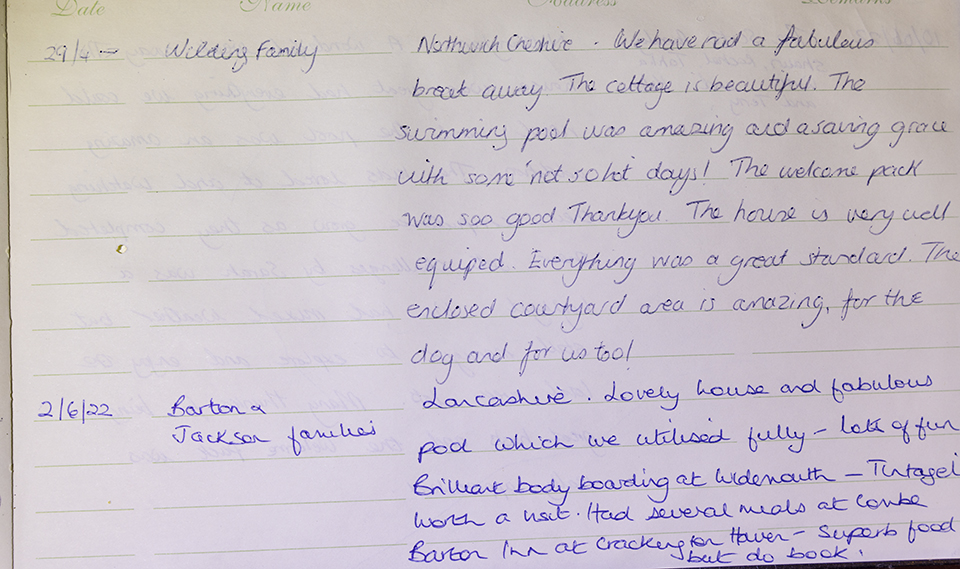 Date Name Address Remarks
29/4 - Wilding Family Northwich Cheshire. We have had a fabulous
break away. The cottage is beautiful. The
swimming pool was amazing and a saving grace
with some 'not so hot days! The welcome pack
was soo good Thankyou. The house is very well
equiped. Everything was a great standard. The
enclosed courtyard area is amazing, for the
dog and for us too!
2/6/22 Barton & Lancashire. Lovely house and fabulous
Jackson families pool which we utilised fully - lots of fun
Brilliant body boarding at Widemouth - Tintagel
worth a visit. Had several meals at Combe
Barton Inn at Crackington Haven - superb food
but do book!